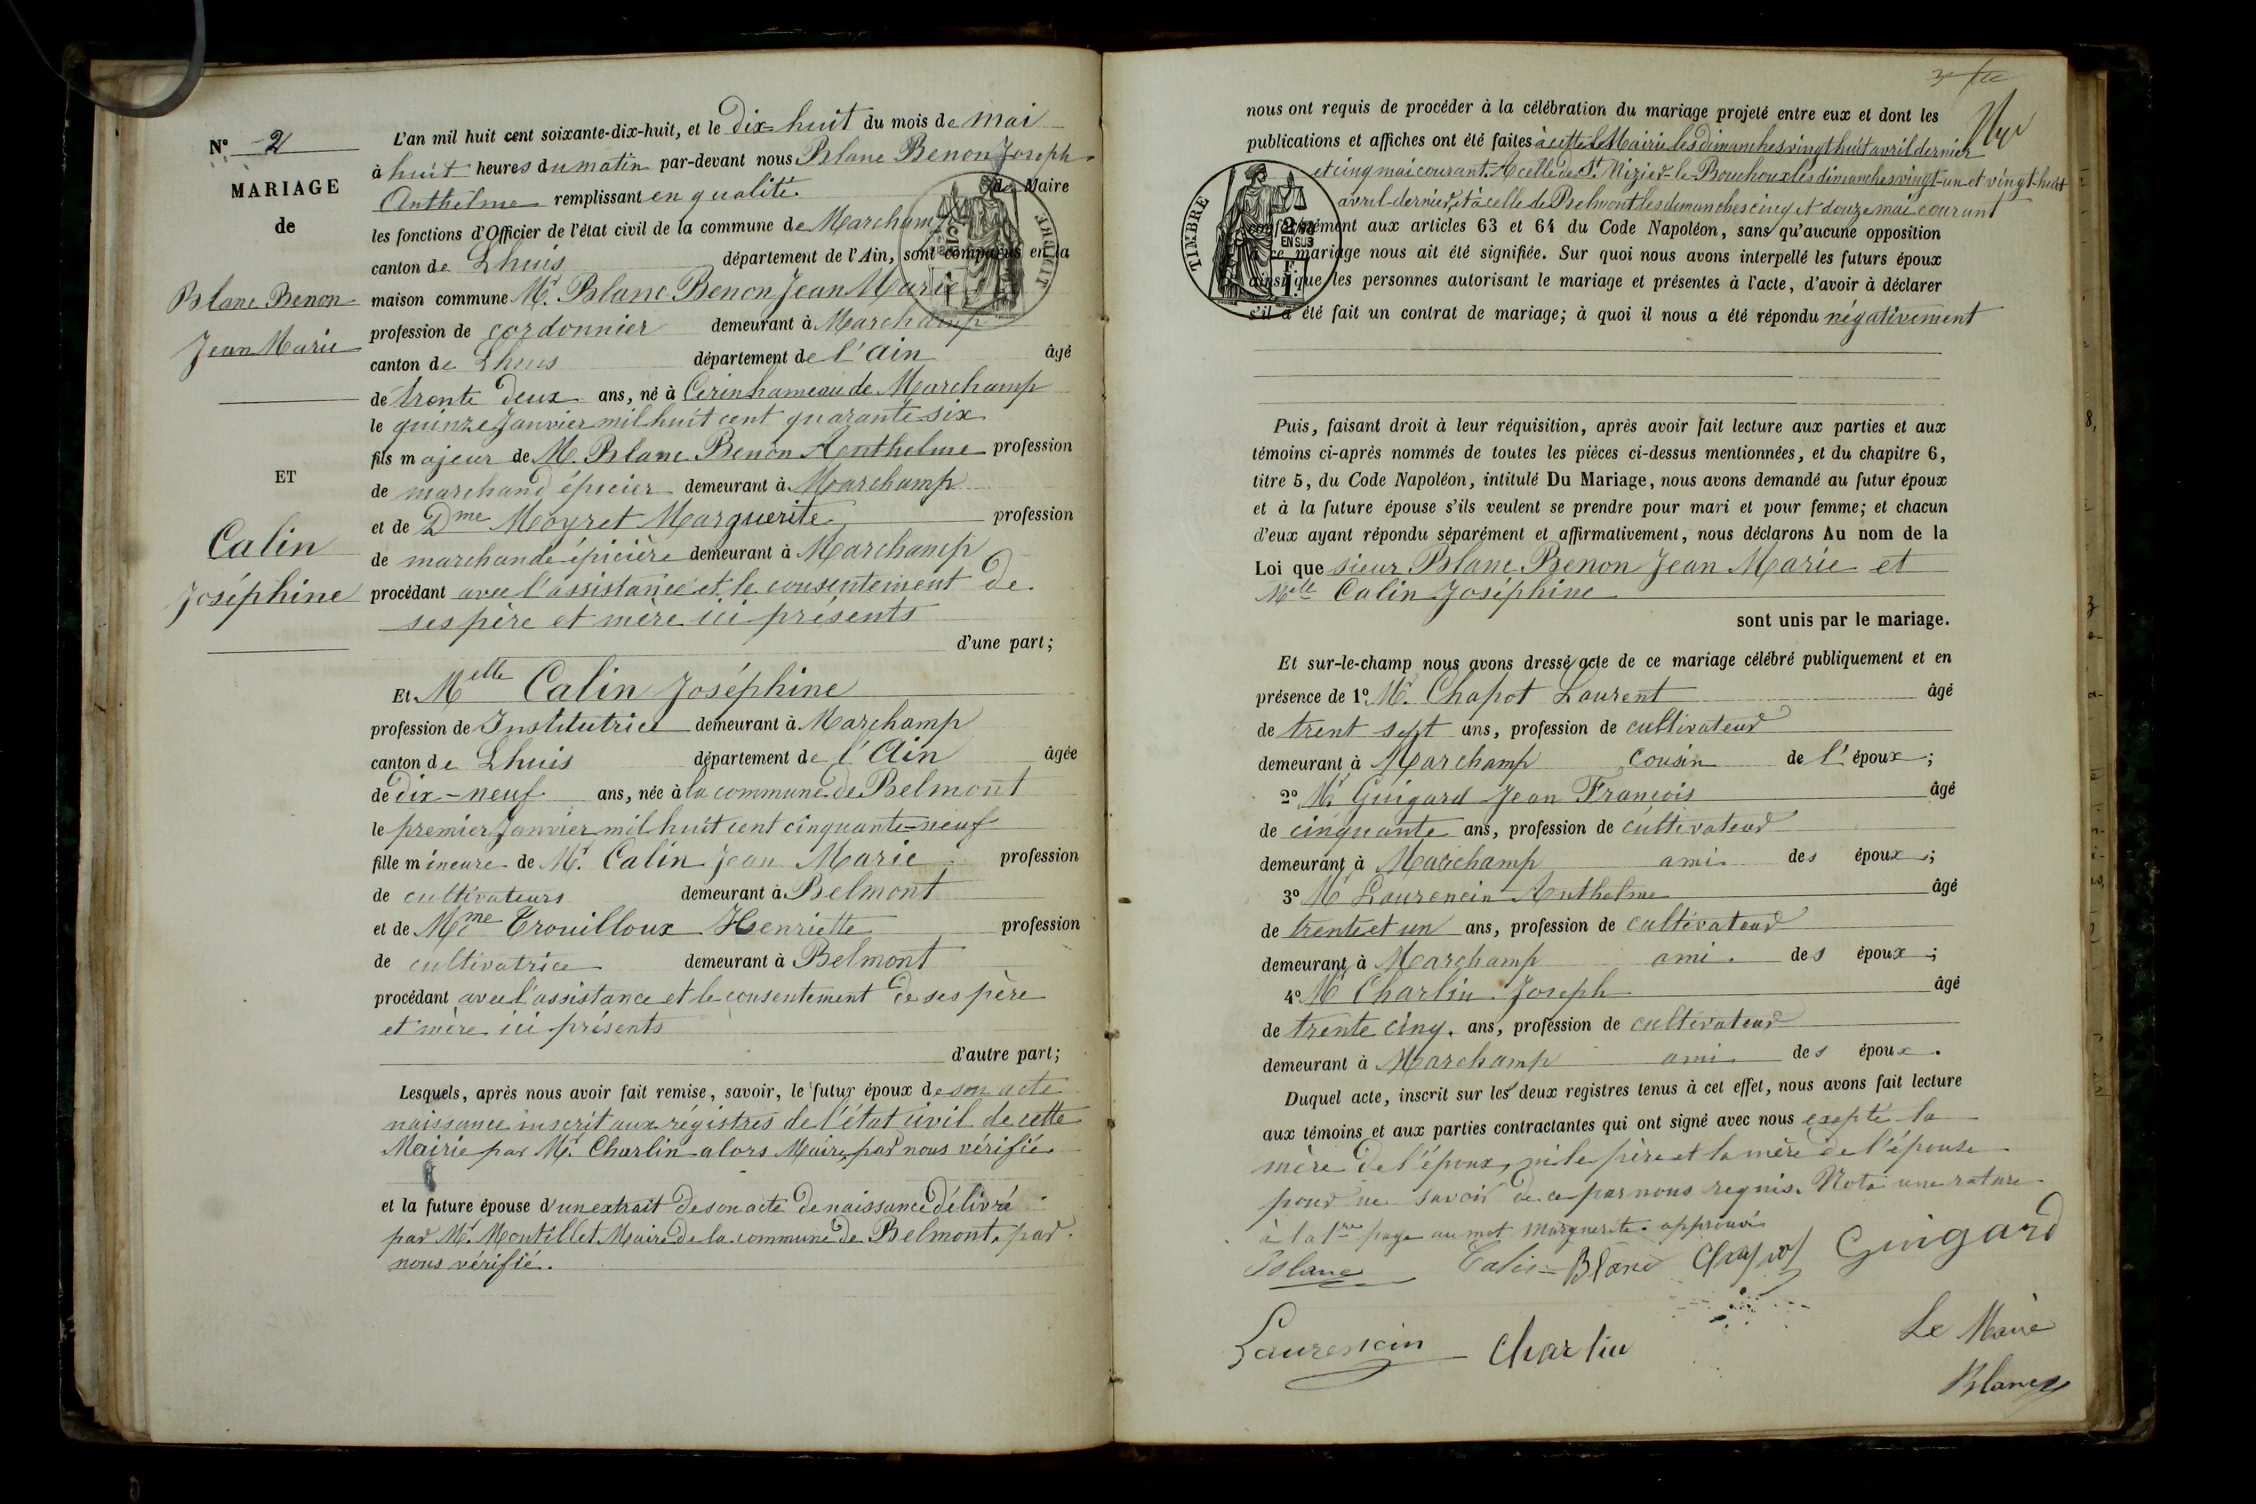 N° 2
MARIAGE
de
Blanc Benon
Jean Marie
ET
Calin
Joséphine
L'an mil huit cent soixante-dix-huit, et le Dix-huit du mois de Mai
à huit heures du matin par-devant nous Blanc Benon Joseph
Anthelme remplissant en qualité de Maire
les fonctions d'Officier de l'état civil de la commune de Marchamp
canton de Lhuis département de l'Ain, sont comparus en la
maison commune Mr. Blanc Benon Jean Marie
profession de cordonnier demeurant à Marchamp
canton de Lhuis département de l'Ain âgé
de trente deux ans, né à Cerin hameau de Marchamp
le quinze Janvier mil huit cent quarante-six
fils majeur de M. Blanc Benon Anthelme profession
de marchand épicier demeurant à Marchamp
et de Dme Moyret Marguerite profession
de marchande épicière demeurant à Marchamp
procédant avec l'assistance et le consentement de
ses père et mère ici présents
d'une part;
Et Melle Calin Joséphine
profession de Institutrice demeurant à Marchamp
canton de Lhuis département de l'Ain âgée
de dix-neuf ans, née à la commune de Belmont
le premier Janvier mil huit cent cinquante-neuf
fille mineure de Mr. Calin Jean Marie profession
de cultivateurs demeurant à Belmont
et de Mme Trouilloux Henriette profession
de cultivatrice demeurant à Belmont
procédant avec l'assistance et le consentement de ses père
et mère ici présents
d'autre part;
Lesquels, après nous avoir fait remise, savoir, le futur époux de son acte
naissance inscrit aux régistres de l'état civil de cette
Mairie par Mr. Charlin alors Maire, par nous vérifié
et la future épouse d'un extrait de son acte de naissance délivré
par Mr. Montillet Maire de la commune de Belmont, par
nous vérifié.
nous ont requis de procéder à la célébration du mariage projeté entre eux et dont les
publications et affiches ont été faites à cette Mairie les dimanches vingt huit avril dernier
et cinq mai courant. A celle de St. Nizier-le-Bouchoux les dimanches vingt-un et vingt-huit
avril dernier, et à celle de Belmont les dimanches cinq et douze mai courant
TIMBRE
2/10 EN SUS
conformément aux articles 63 et 64 du Code Napoléon, sans qu'aucune opposition
à ce mariage nous ait été signifiée. Sur quoi nous avons interpellé les futurs époux
ainsi que les personnes autorisant le mariage et présentes à l'acte, d'avoir à déclarer
s'il a été fait un contrat de mariage; à quoi il nous a été répondu négativement
Puis, faisant droit à leur réquisition, après avoir fait lecture aux parties et aux
témoins ci-après nommés de toutes les pièces ci-dessus mentionnées, et du chapitre 6,
titre 5, du Code Napoléon, intitulé Du Mariage, nous avons demandé au futur époux
et à la future épouse s'ils veulent se prendre pour mari et pour femme; et chacun
d'eux ayant répondu séparément et affirmativement, nous déclarons Au nom de la
Loi que sieur Blanc Benon Jean Marie et
Melle Calin Joséphine
sont unis par le mariage.
Et sur-le-champ nous avons dressé acte de ce mariage célébré publiquement et en
présence de 1° Mr. Chapot Laurent âgé
de trent sept ans, profession de cultivateur
demeurant à Marchamp cousin de l'époux;
2° Mr Guigard Jean François âgé
de cinquante ans, profession de cultivateur
demeurant à Marchamp ami des époux;
3° Mr Laurencin Anthelme âgé
de trente et un ans, profession de cultivateur
demeurant à Marchamp ami des époux;
4° Mr Charlin Joseph âgé
de trente cinq ans, profession de cultivateur
demeurant à Marchamp ami des époux.
Duquel acte, inscrit sur les deux registres tenus à cet effet, nous avons fait lecture
aux témoins et aux parties contractantes qui ont signé avec nous exepté la
mère de l'époux, ni le père et la mère de l'épouse
pour ne savoir de ce par nous requis. Nota une rature
à la 1re page au mot Marguerite. approuvé
Blanc Calin Blanc Chapot Guigard
Laurencin Charlin Le Maire
Blanc